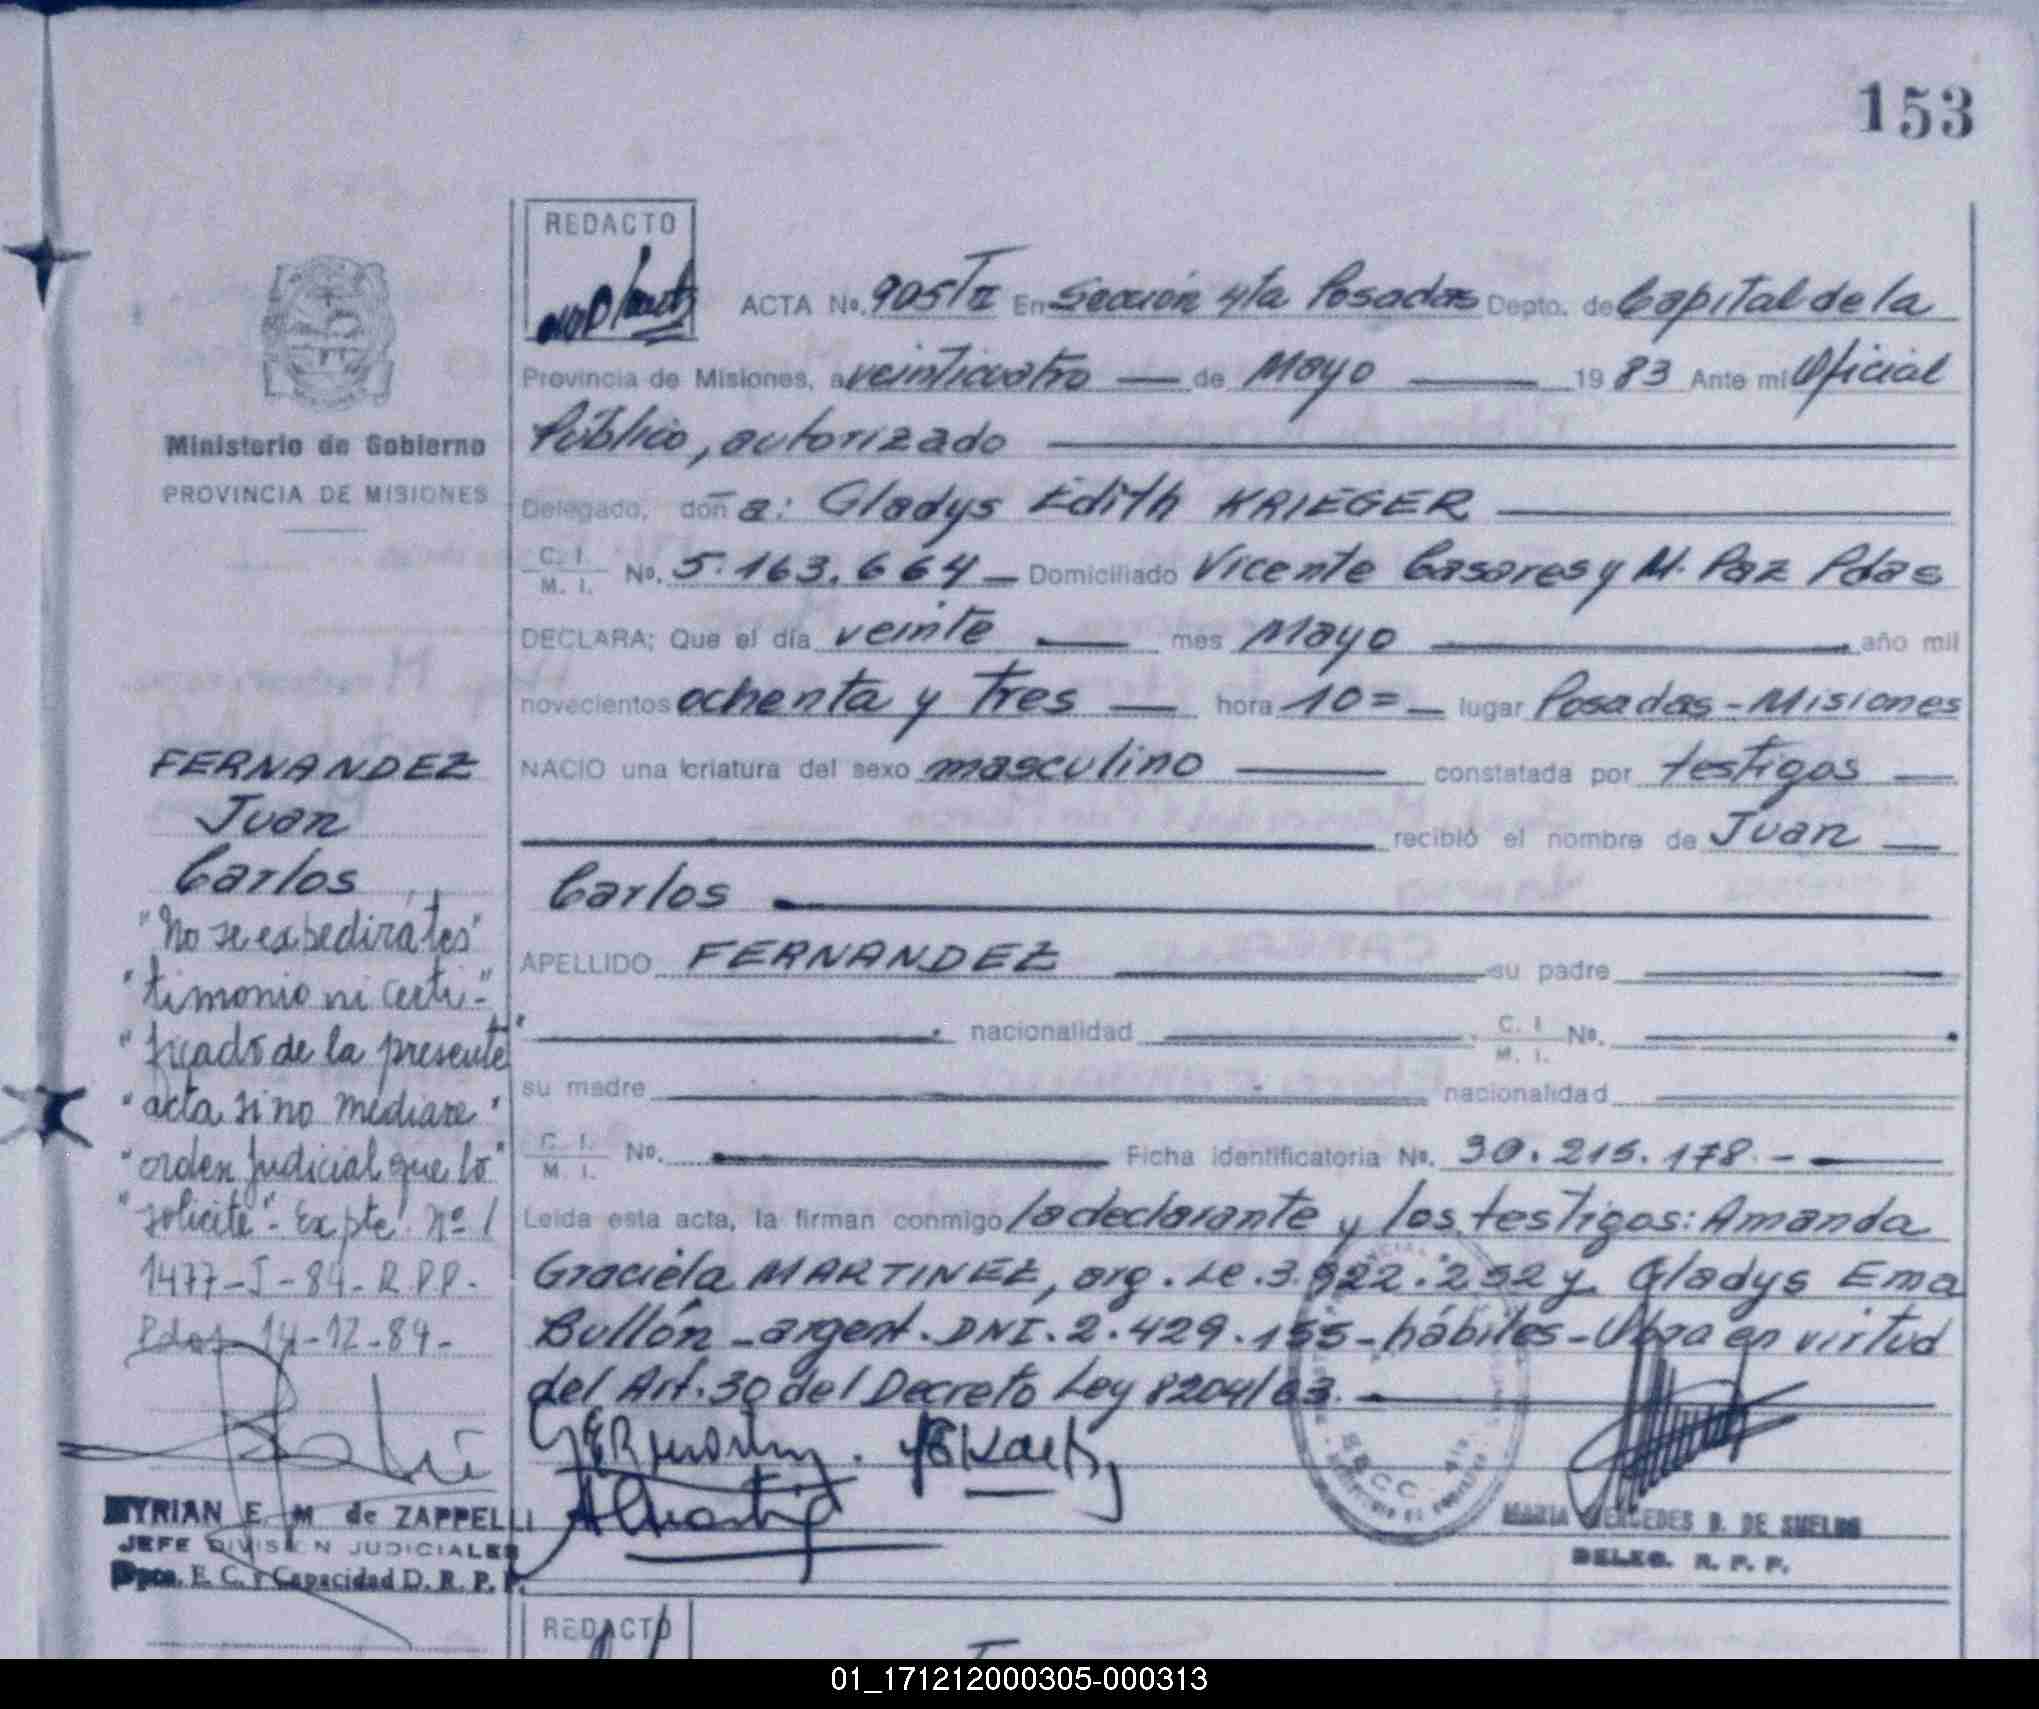 153
REDACTO
ACTA No. 905/T II En Sección 4ta Posadas Depto. de Capital de la
Provincia de Misiones, a veinticuatro — de Mayo — 19 83 Ante mi Oficial
Público, autorizado
Delegado, doña: Gladys Edith KRIEGER
C. I. M. I. No. 5.163.664 — Domiciliado Vicente Casares y M. Paz Pdas
DECLARA; Que el día veinte — mes Mayo — año mil
novecientos ochenta y tres — hora 10= — lugar Posadas - Misiones
NACIO una criatura del sexo masculino — constatada por testigos —
recibió el nombre de Juan —
Carlos
APELLIDO FERNANDEZ — su padre
nacionalidad C. I. M. I. No.
su madre nacionalidad
C. I. M. I. No. Ficha identificatoria No. 30.215.178 -
Leida esta acta, la firman conmigo la declarante y los testigos: Amanda
Graciela MARTINEZ, arg. Le. 3.922.252 y Gladys Ema
Bullón - argent. DNI. 2.429.155 - hábiles - Obra en virtud
del Art. 30 del Decreto Ley 8204/63.
SECC. 4ta.
MARIA MERCEDES D. DE SUELDO
DELEG. R. P. P.
Ministerio de Gobierno
PROVINCIA DE MISIONES
FERNANDEZ
Juan
Carlos
"No se expedirá tes"
"timonio ni certi-"
"ficado de la presente"
"acta si no mediare"
"orden Judicial que lo"
"solicite"- Expte. Nº
1477-I-84-R.P.P.-
Pdas 14-12-84-
MYRIAN E. M de ZAPPELLI
JEFE DIVISION JUDICIALES
Dpca. E. C. y Capacidad D. R. P. P.
REDACTO
01_171212000305-000313